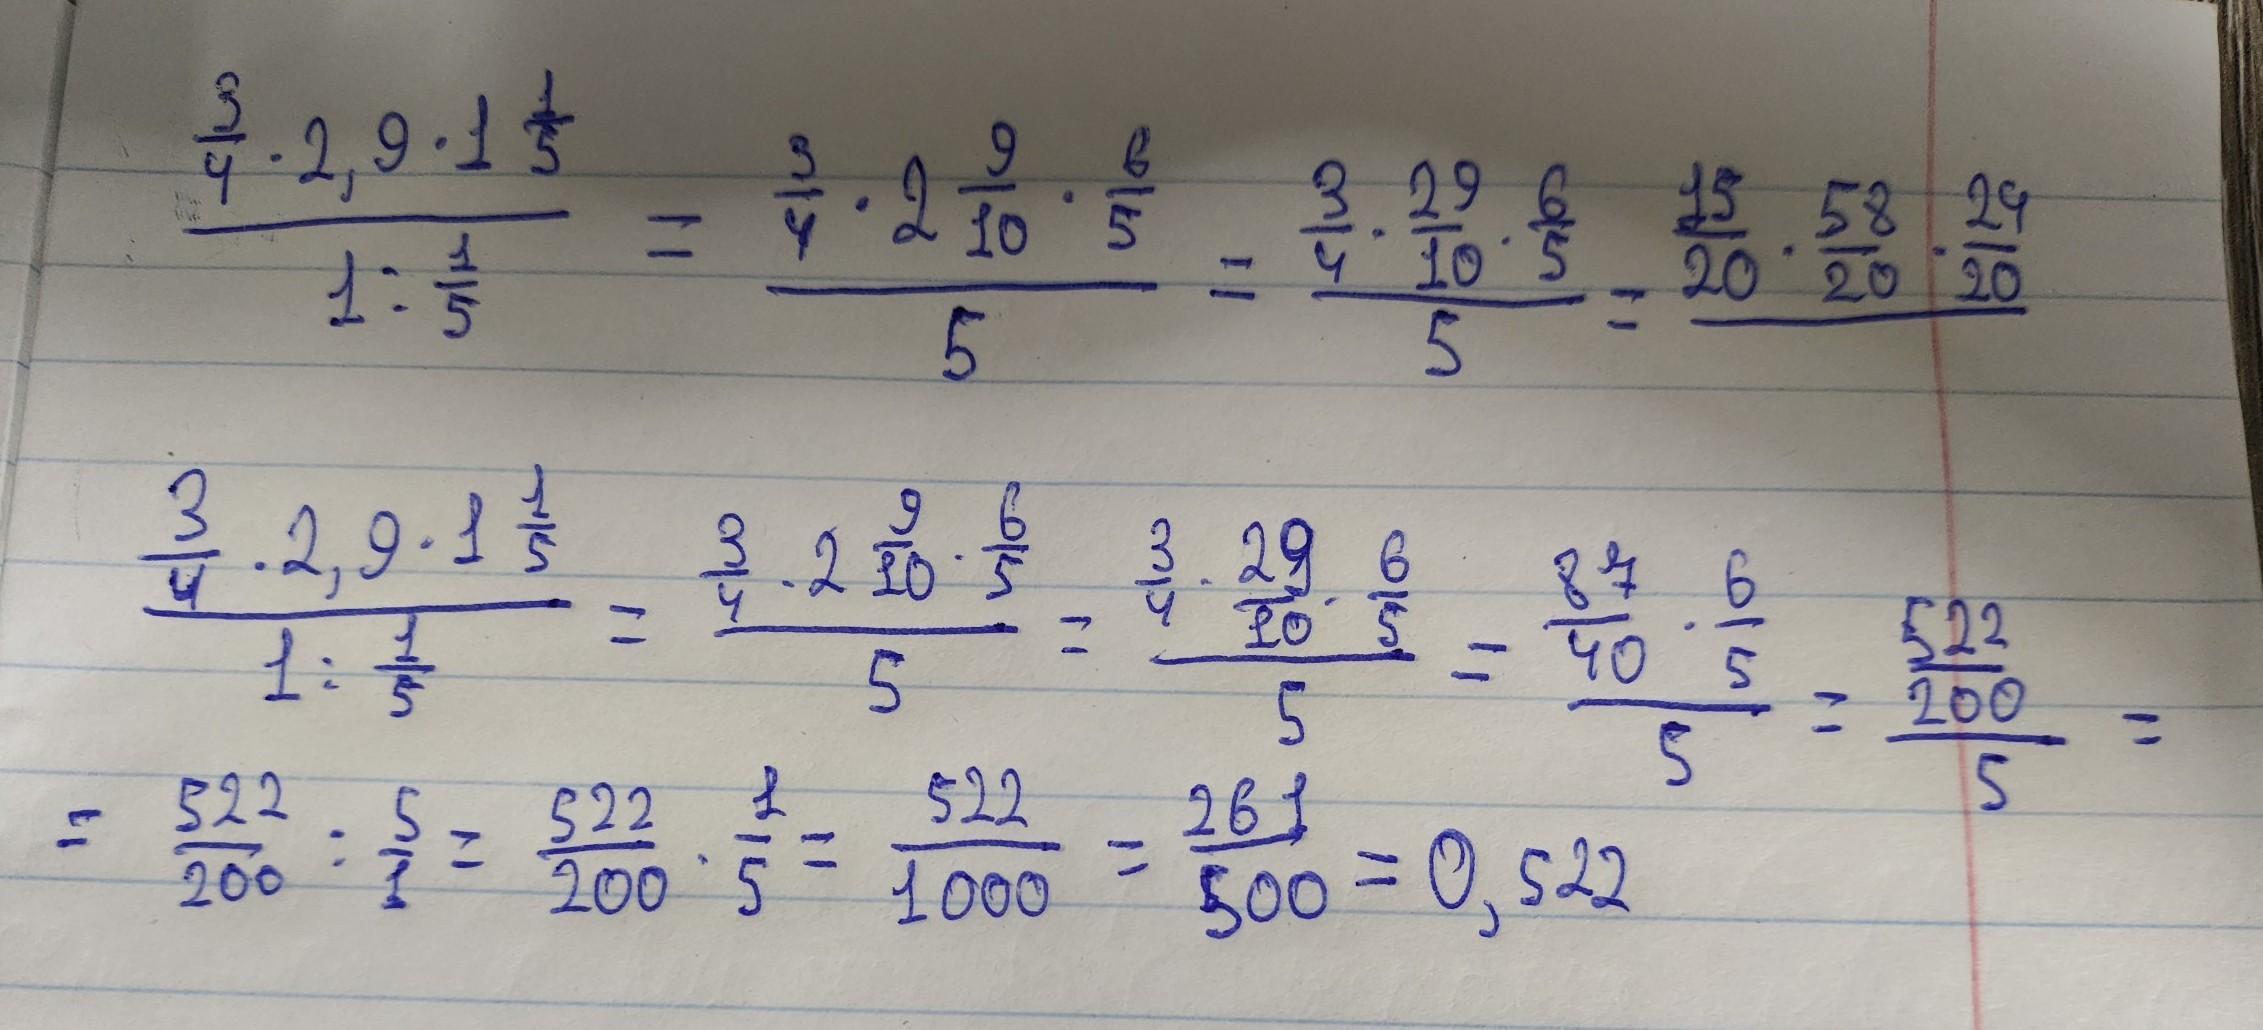 (3/4 · 2,9 · 1 1/5)/(1 : 1/5) = (3/4 · 2 9/10 · 6/5)/5 = (3/4 · 29/10 · 6/5)/5 = 15/20 · 58/20 · 24/20
(3/4 · 2,9 · 1 1/5)/(1 : 1/5) = (3/4 · 2 9/10 · 6/5)/5 = (3/4 · 29/10 · 6/5)/5 = (87/40 · 6/5)/5 = (522/200)/5 =
= 522/200 : 5/1 = 522/200 · 1/5 = 522/1000 = 261/500 = 0,522